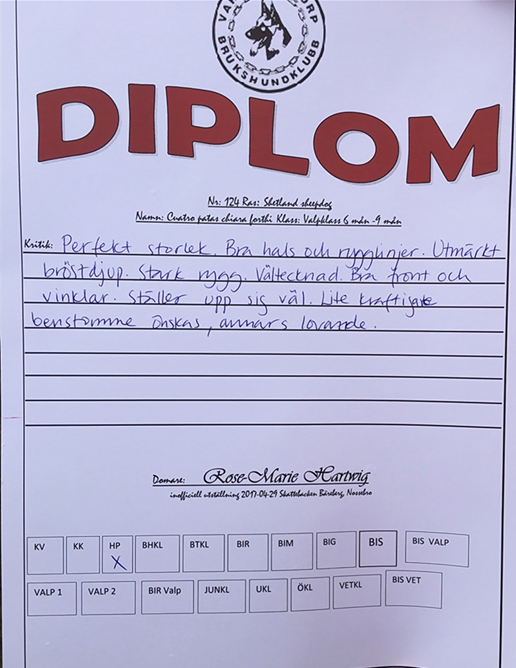 BRUKSHUNDKLUBB
DIPLOM
Nr: 124 Ras: Shetland sheepdog
Namn: Cuatro patas chiara forthi Klass: Valpklass 6 mån -9 mån
Kritik: Perfekt storlek. Bra hals och rygglinjer. Utmärkt
bröstdjup. Stark rygg. Vältecknad. Bra front och
vinklar. Ställer upp sig väl. Lite kraftigare
benstomme önskas, annars lovande.
Domare: Rose-Marie Hartwig
inofficiell utställning 2017-04-29 Skattebacken Bäreberg, Nossebro
KV KK HP BHKL BTKL BIR BIM BIG BIS BIS VALP
X
VALP 1 VALP 2 BIR Valp JUNKL UKL ÖKL VETKL BIS VET